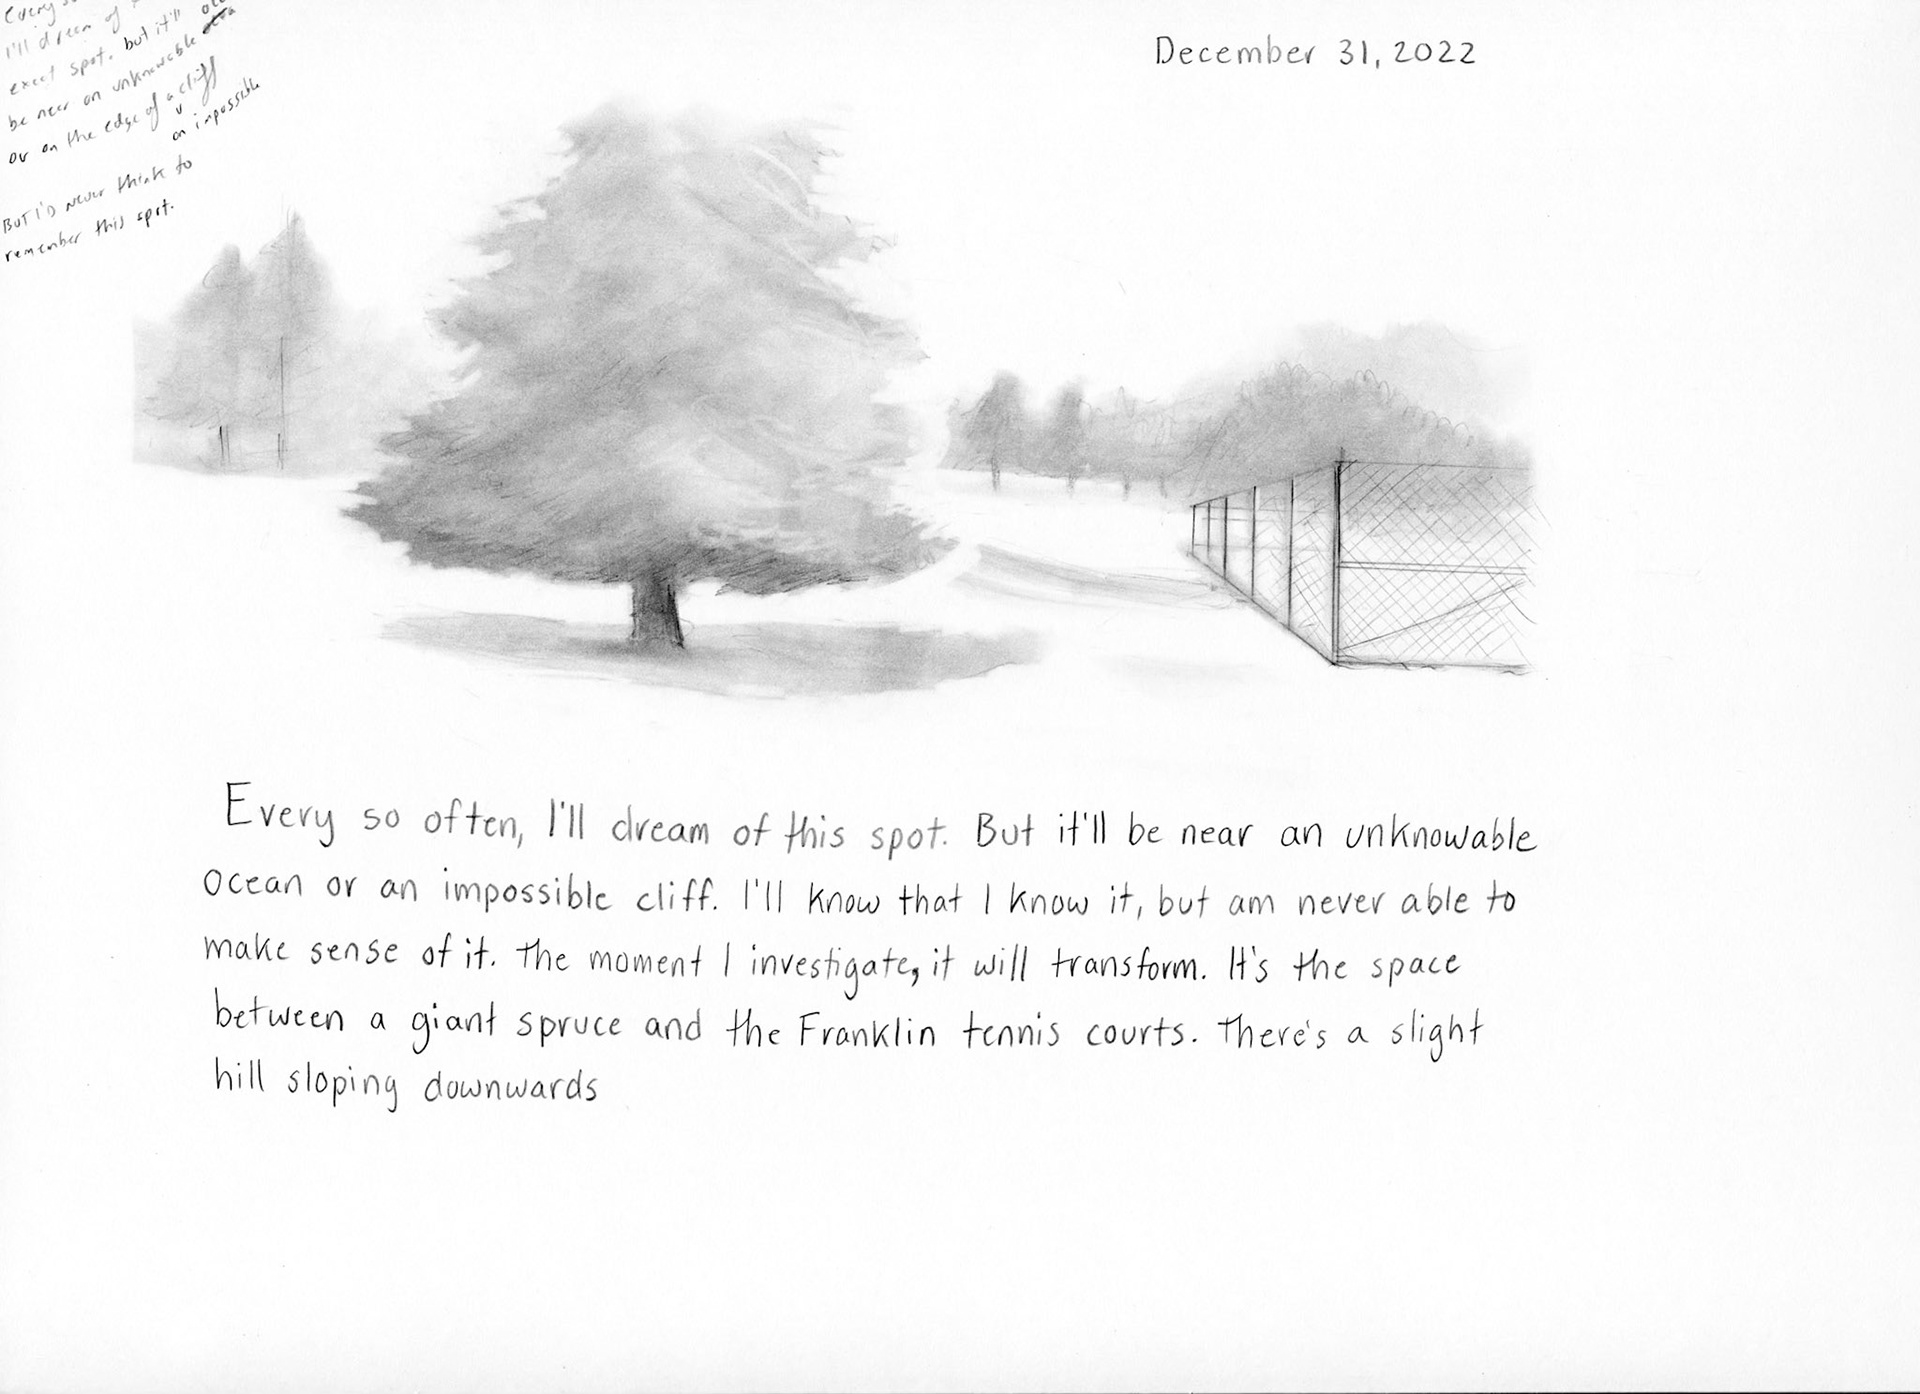 Every so
I'll dream of
exact spot. but it'll
be near an unknowable
or on the edge of a cliff
an impossible
BUT I'D never think to
remember this spot.
December 31, 2022
Every so often, I'll dream of this spot. But it'll be near an unknowable
ocean or an impossible cliff. I'll know that I know it, but am never able to
make sense of it. The moment I investigate, it will transform. It's the space
between a giant spruce and the Franklin tennis courts. There's a slight
hill sloping downwards